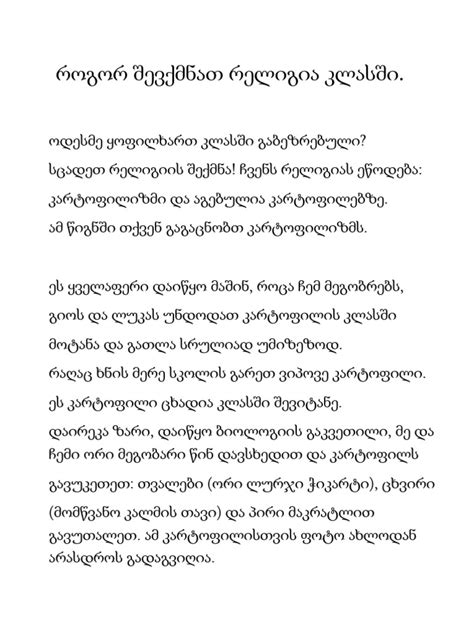 როგორ შევქმნათ რელიგია კლასში.
ოდესმე ყოფილხართ კლასში გაბეზრებული?
სცადეთ რელიგიის შექმნა! ჩვენს რელიგიას ეწოდება:
კარტოფილიზმი და აგებულია კარტოფილებზე.
ამ წიგნში თქვენ გაგაცნობთ კარტოფილიზმს.
ეს ყველაფერი დაიწყო მაშინ, როცა ჩემ მეგობრებს,
გიოს და ლუკას უნდოდათ კარტოფილის კლასში
მოტანა და გათლა სრულიად უმიზეზოდ.
რაღაც ხნის მერე სკოლის გარეთ ვიპოვე კარტოფილი.
ეს კარტოფილი ცხადია კლასში შევიტანე.
დაირეკა ზარი, დაიწყო ბიოლოგიის გაკვეთილი, მე და
ჩემი ორი მეგობარი წინ დავსხედით და კარტოფილს
გავუკეთეთ: თვალები (ორი ლურჯი ჭიკარტი), ცხვირი
(მომწვანო კალმის თავი) და პირი მაკრატლით
გავუთალეთ. ამ კარტოფილისთვის ფოტო ახლოდან
არასდროს გადაგვიღია.